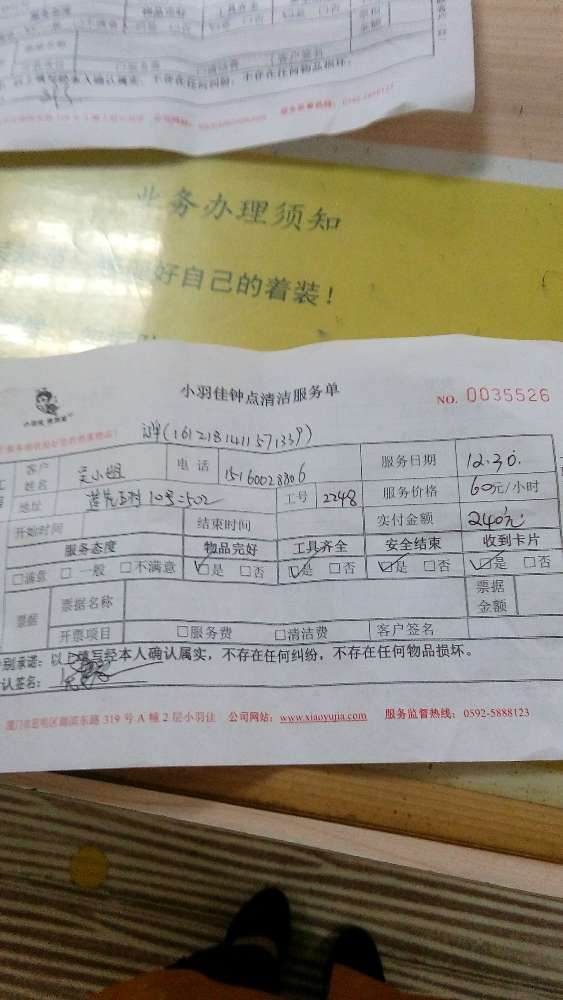 业务办理须知
好自己的着装！
小羽佳钟点清洁服务单
NO. 0035526
(1612181411571339)
客户姓名 吴小姐 电话 15160028806 服务日期 12.30.
地址 莲花五村10号502 工号 2248 服务价格 60元/小时
开始时间 结束时间 实付金额 240元
服务态度 物品完好 工具齐全 安全结束 收到卡片
□满意 □一般 □不满意 ☑是 □否 ☑是 □否 ☑是 □否 ☑是 □否
票据 票据名称 票据金额
开票项目 □服务费 □清洁费 客户签名
别承诺：以上填写经本人确认属实，不存在任何纠纷，不存在任何物品损坏。
认签名：
厦门市思明区湖滨东路 319 号 A 幢 2 层小羽佳 公司网站：www.xiaoyujia.com 服务监督热线：0592-5888123